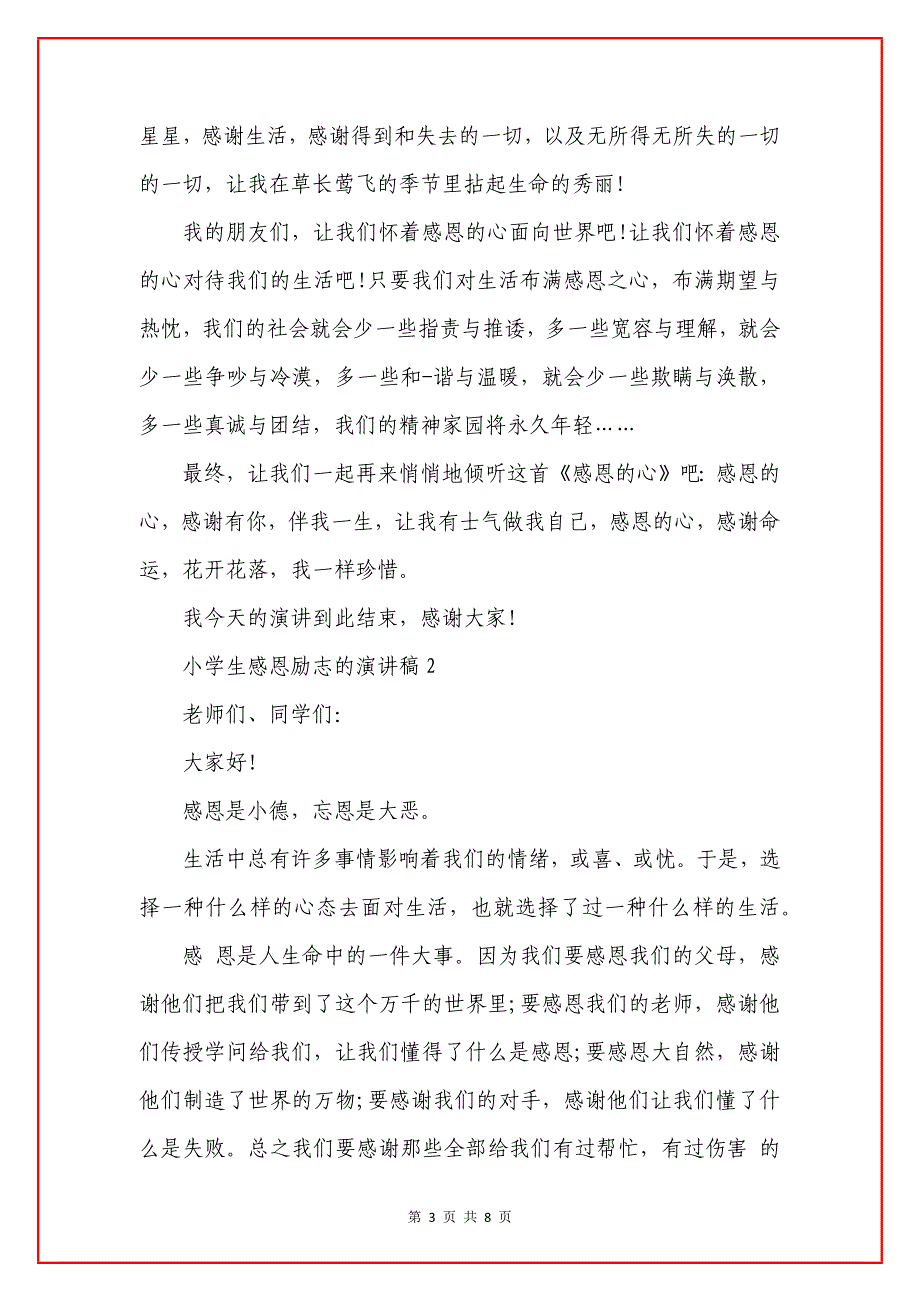 星星，感谢生活，感谢得到和失去的一切，以及无所得无所失的一切
的一切，让我在草长莺飞的季节里拈起生命的秀丽!
我的朋友们，让我们怀着感恩的心面向世界吧!让我们怀着感恩
的心对待我们的生活吧!只要我们对生活布满感恩之心，布满期望与
热忱，我们的社会就会少一些指责与推诿，多一些宽容与理解，就会
少一些争吵与冷漠，多一些和-谐与温暖，就会少一些欺瞒与涣散，
多一些真诚与团结，我们的精神家园将永久年轻……
最终，让我们一起再来悄悄地倾听这首《感恩的心》吧：感恩的
心，感谢有你，伴我一生，让我有士气做我自己，感恩的心，感谢命
运，花开花落，我一样珍惜。
我今天的演讲到此结束，感谢大家!
小学生感恩励志的演讲稿 2
老师们、同学们：
大家好!
感恩是小德，忘恩是大恶。
生活中总有许多事情影响着我们的情绪，或喜、或忧。于是，选
择一种什么样的心态去面对生活，也就选择了过一种什么样的生活。
感 恩是人生命中的一件大事。因为我们要感恩我们的父母，感
谢他们把我们带到了这个万千的世界里;要感恩我们的老师，感谢他
们传授学问给我们，让我们懂得了什么是感恩;要感恩大自然，感谢
他们制造了世界的万物;要感谢我们的对手，感谢他们让我们懂了什
么是失败。总之我们要感谢那些全部给我们有过帮忙，有过伤害 的
第 3 页 共 8 页